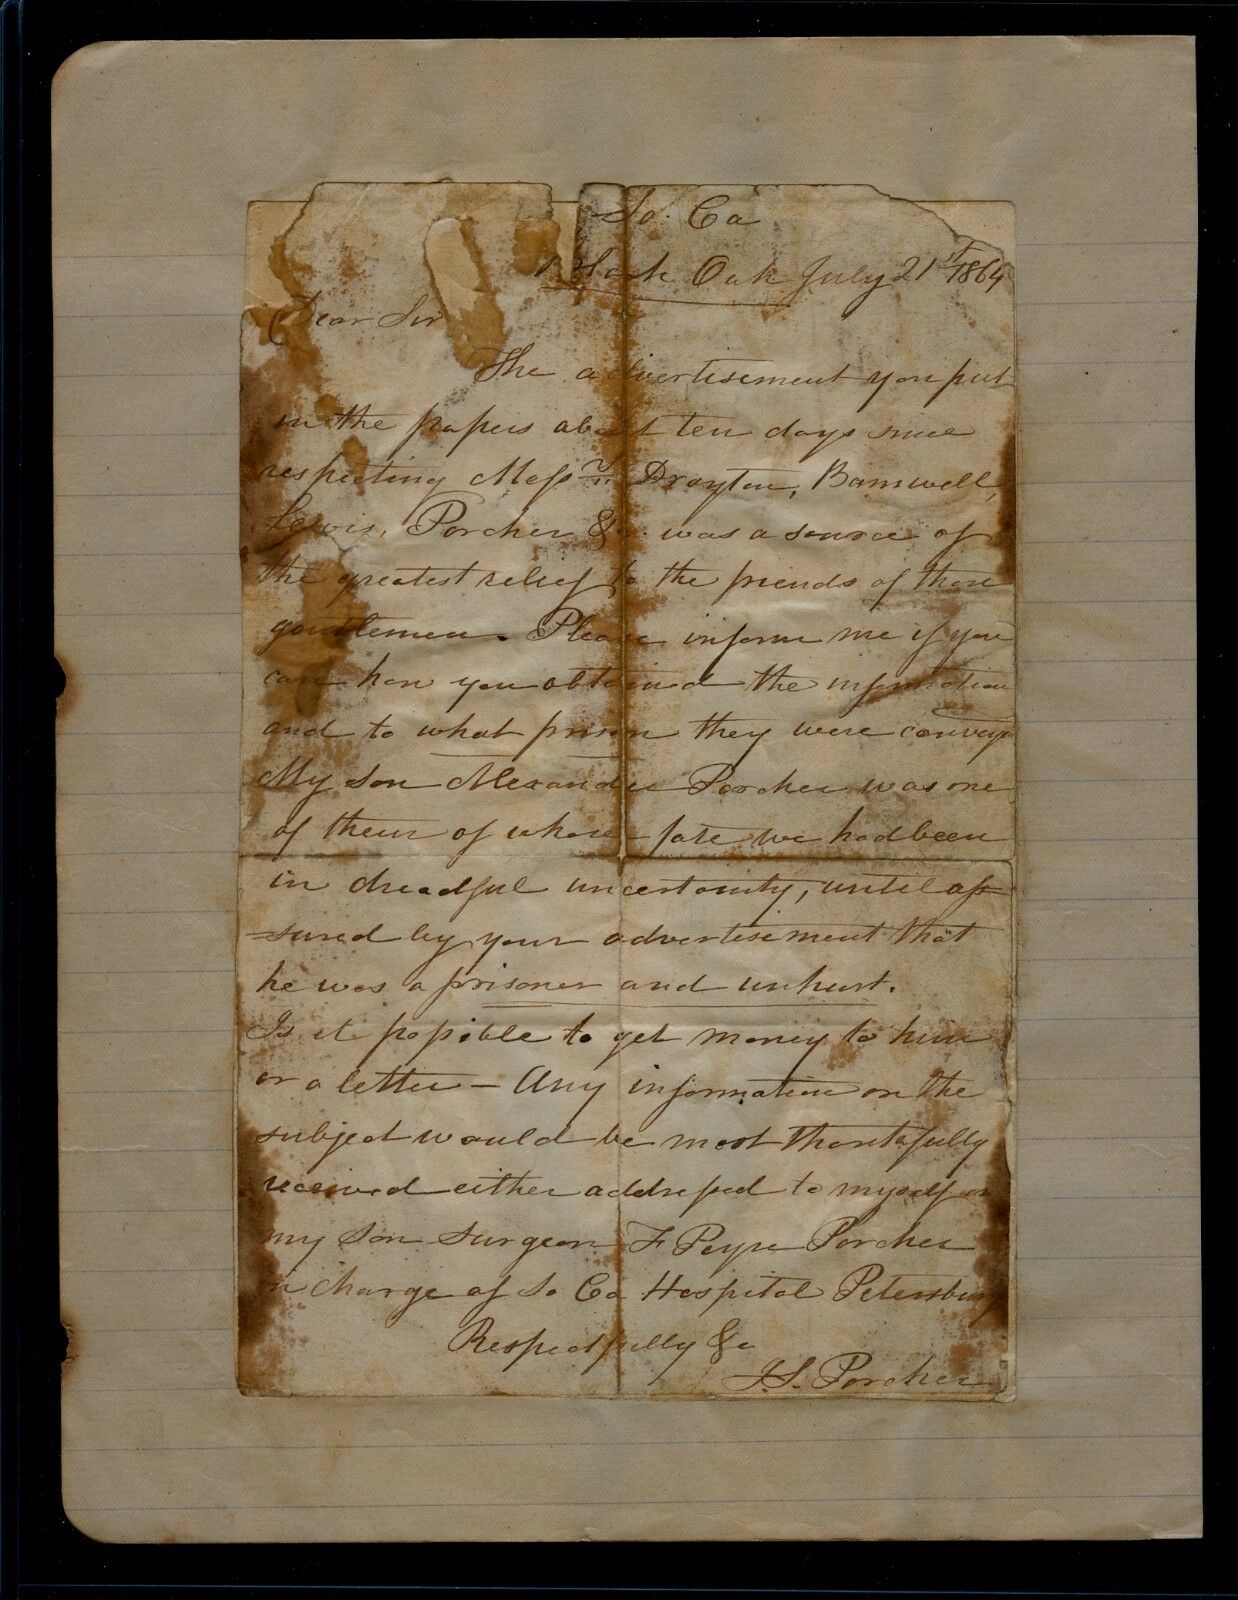 So. Ca
Black Oak July 21st 1864
Dear Sir
The advertisement you put
in the papers about ten days since
respecting Messrs Drayton, Barnwell,
Lewis, Porcher &c. was a source of
the greatest relief to the friends of those
gentlemen. Please inform me if you
can how you obtained the information
and to what prison they were convey
My son Alexander Porcher was one
of them of whose fate we had been
in dreadful uncertainty, until as-
-sured by your advertisement that
he was a prisoner and unhurt.
Is it possible to get money to him
or a letter — Any information on the
subject would be most thankfully
received either addressed to myself or
my son Surgeon F Peyre Porcher
in charge of So Ca Hospital Petersburg
Respectfully &c
Porcher